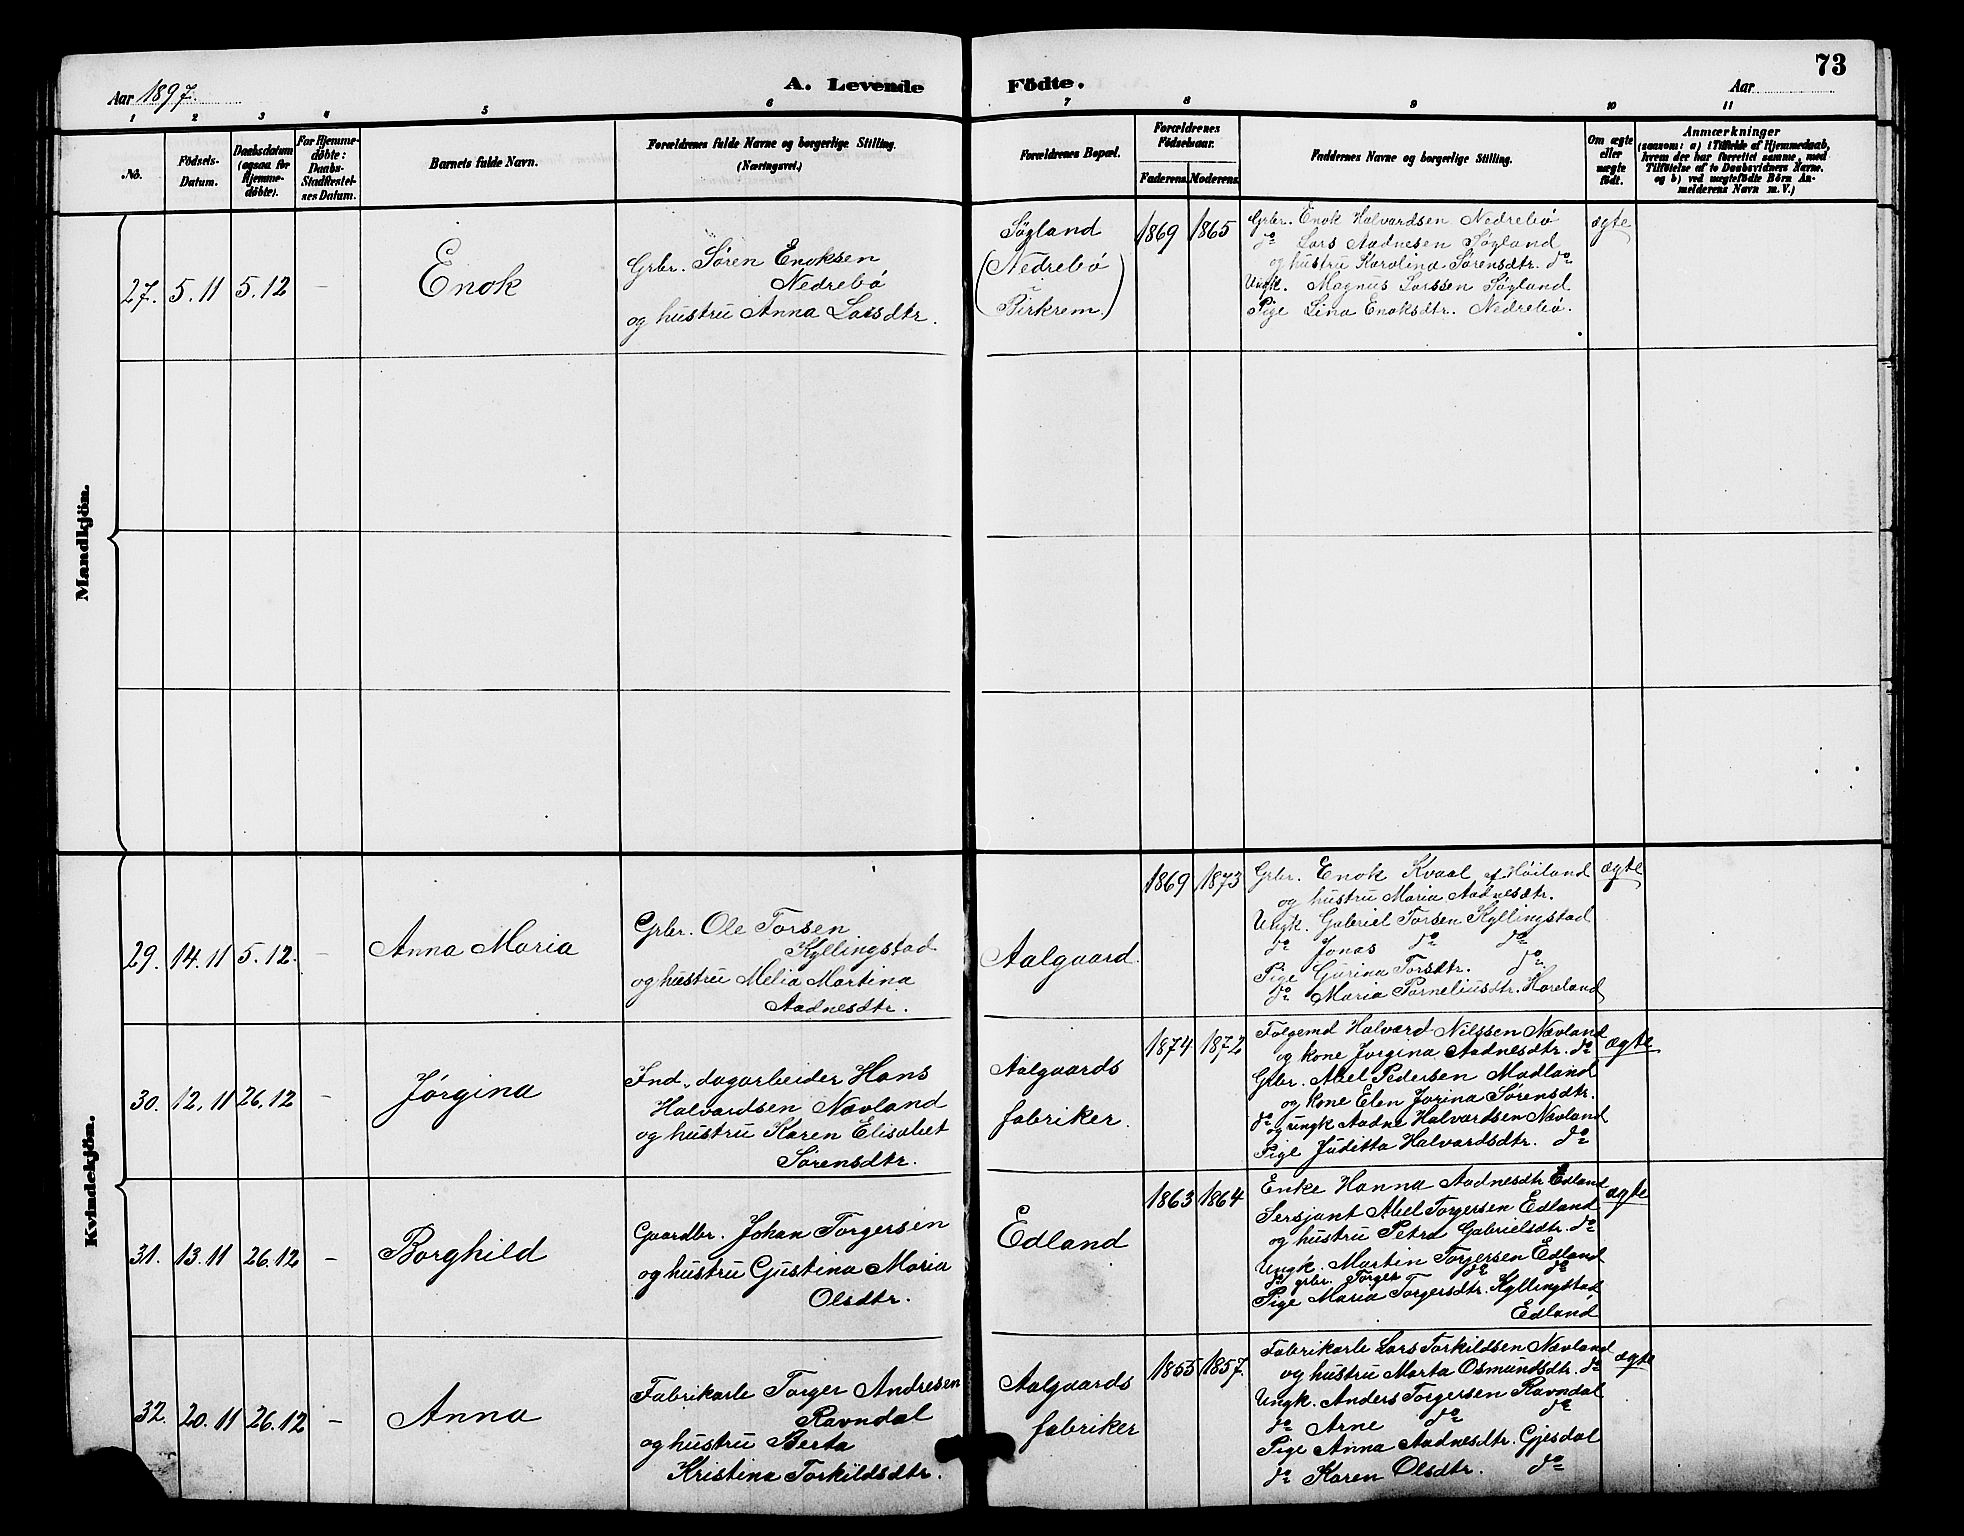 Aar 1897. A. Levende Födte. Aar 73
1 2 3 4 5 6 7 8 9 10 11
No.
Födsels-
Datum.
Daabsdatum
(ogsaa for
Hjemme-
döbte).
For Hjemme-
döbte:
Daabs-
Stadfæstel-
ses Datum.
Barnets fulde Navn.
Forældrenes fulde Navne og borgerlige Stilling.
(Næringsvei.)
Forældrenes Bopæl.
Forældrenes
Födselsaar.
Faderens. Moderens.
Faddernes Navne og borgerlige Stilling.
Om ægte
eller
uægte
födt.
Anmærkninger
(saasom: a) i Tilfælde af Hjemmedaab,
hvem der har forrettet samme, med
Tilföielse af to Daabsvidners Navne.
og b) ved uægtefödte Börn An-
melderens Navn m. V.)
Mandkjön.
27. 5.11 5.12 - Enok
Grbr. Søren Enoksen
Nedrebø
og hustru Anna Larsdtr.
Søgland
(Nedrebø
i
Birkrem.)
1869 1865
Grbr. Enok Halvardsen Nedrebø
do Lars Aadnesen Søgland
og hustru Karolina Sørensdtr. do
Ungk. Magnus Larssen Søgland
Pige Lina Enoksdtr. Nedrebø.
ægte
Kvindekjön.
29. 14.11 5.12. - Anna Maria
Grbr. Ole Torsen
Kyllingstad
og hustru Melia Martina
Aadnesdtr.
Aalgaard.
1869 1873
Grbr. Enok Kvaal af Høiland
og hustru Maria Aadnesdtr.
Ungk. Gabriel Torsen Kyllingstad
do Jonas do do
Pige Gurina Torsdtr. do
do Maria Porneliusdtr. Hareland
ægte
30. 12.11 26.12 - Jørgina
Ind. dagarbeider Hans
Halvardsen Nævland
og hustru Karen Elisabet
Sørensdtr.
Aalgaards
fabriker.
1874 1872
Følgemd Halvard Nilssen Nævland
og kone Jorgina Aadnesdtr. do
Grbr. Abel Pedersen Madland
og kone Elen Jorina Sørensdtr.
do og ungk Aadne Halvardsen Nævland
Pige Juditta Halvardsdtr. do
ægte
31. 13.11 26.12 - Borghild
Gaardbr. Johan Torgersen
og hustru Gustina Maria
Olsdtr.
Edland
1863 1864
Enke Hanna Aadnesdtr Edland
Sersjant Abel Torgersen Edland
og hustru Petra Gabrielsdtr. do
Ungk. Martin Torgersen Edland
do grbr. Torger do do
Pige Maria Torgersdtr. Kyllingstad
Edland
ægte
32. 20.11 26.12 - Anna
Fabrikarb Torger Andresen
Ravndal
og hustru Berta
Kristina Torkildsdtr.
Aalgaards
fabriker
1855 1857.
Fabrikarb Lars Torkildsen Nævland
og hustru Marta Osmundsdtr. do
Ungk. Anders Torgersen Ravndal
do Arne do do
Pige Anna Aadnesdtr. Gjesdal
do Karen Olsdtr. do
ægte